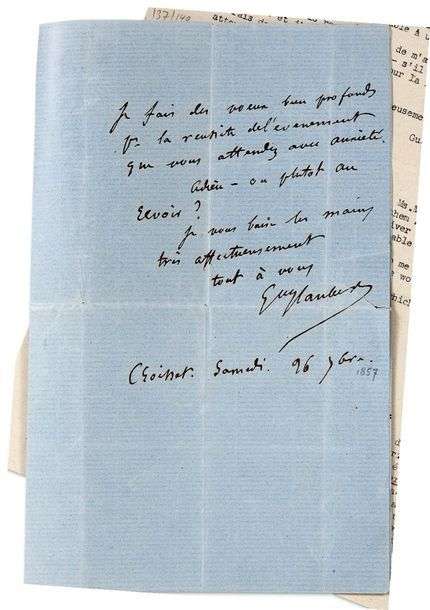 137/140
Je fais des voeux bien profonds
pr la reussite de l'evenement
que vous attendez avec anxiété.
Adieu – ou plutot au
Revoir ?
Je vous baise les mains
très affectueusement
tout à vous
GveFlaubert
Croisset. Samedi. 26 7bre. 1857
de m'a
- s'il
our la
eusement
Gu
hem
iver
able
me
wo
hich